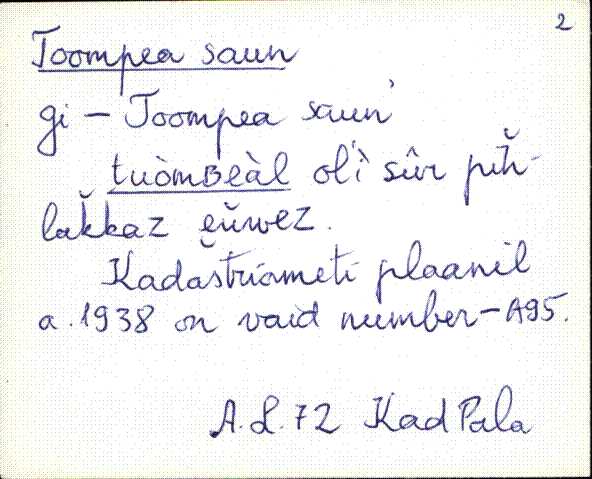 2
Toompea saun
gi – Toompea saun'
tuòmʙeàl ol'i sûr pĭh-
lak̆kaz ĕŭwez.
Kadastriameti plaanil
a. 1938 on vaid number – A95.
A. L. 72 KadPala